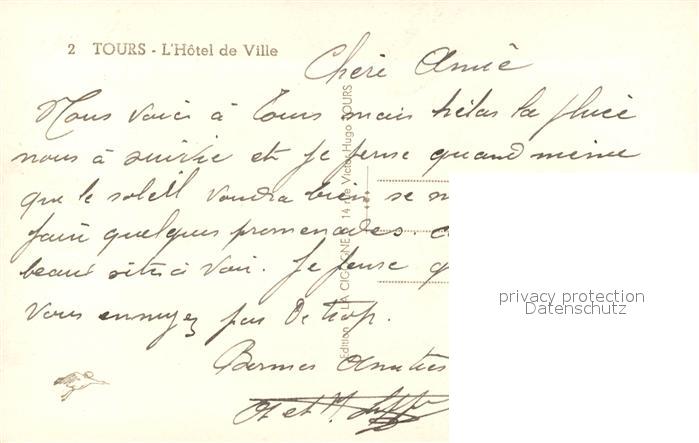 2 TOURS - L'Hôtel de Ville
Chère Amie
Nous voici à Tours mais hélas la pluie
nous à suivie et Je pense quand même
que le soleil voudra bien se
faire quelques promenades
beaux sites à voir. Je pense
vous ennuyez pas de trop.
Bonnes Amitiés
et M.
Edition LA CIGOGNE 14 rue Victor-Hugo TOURS
privacy protection
Datenschutz